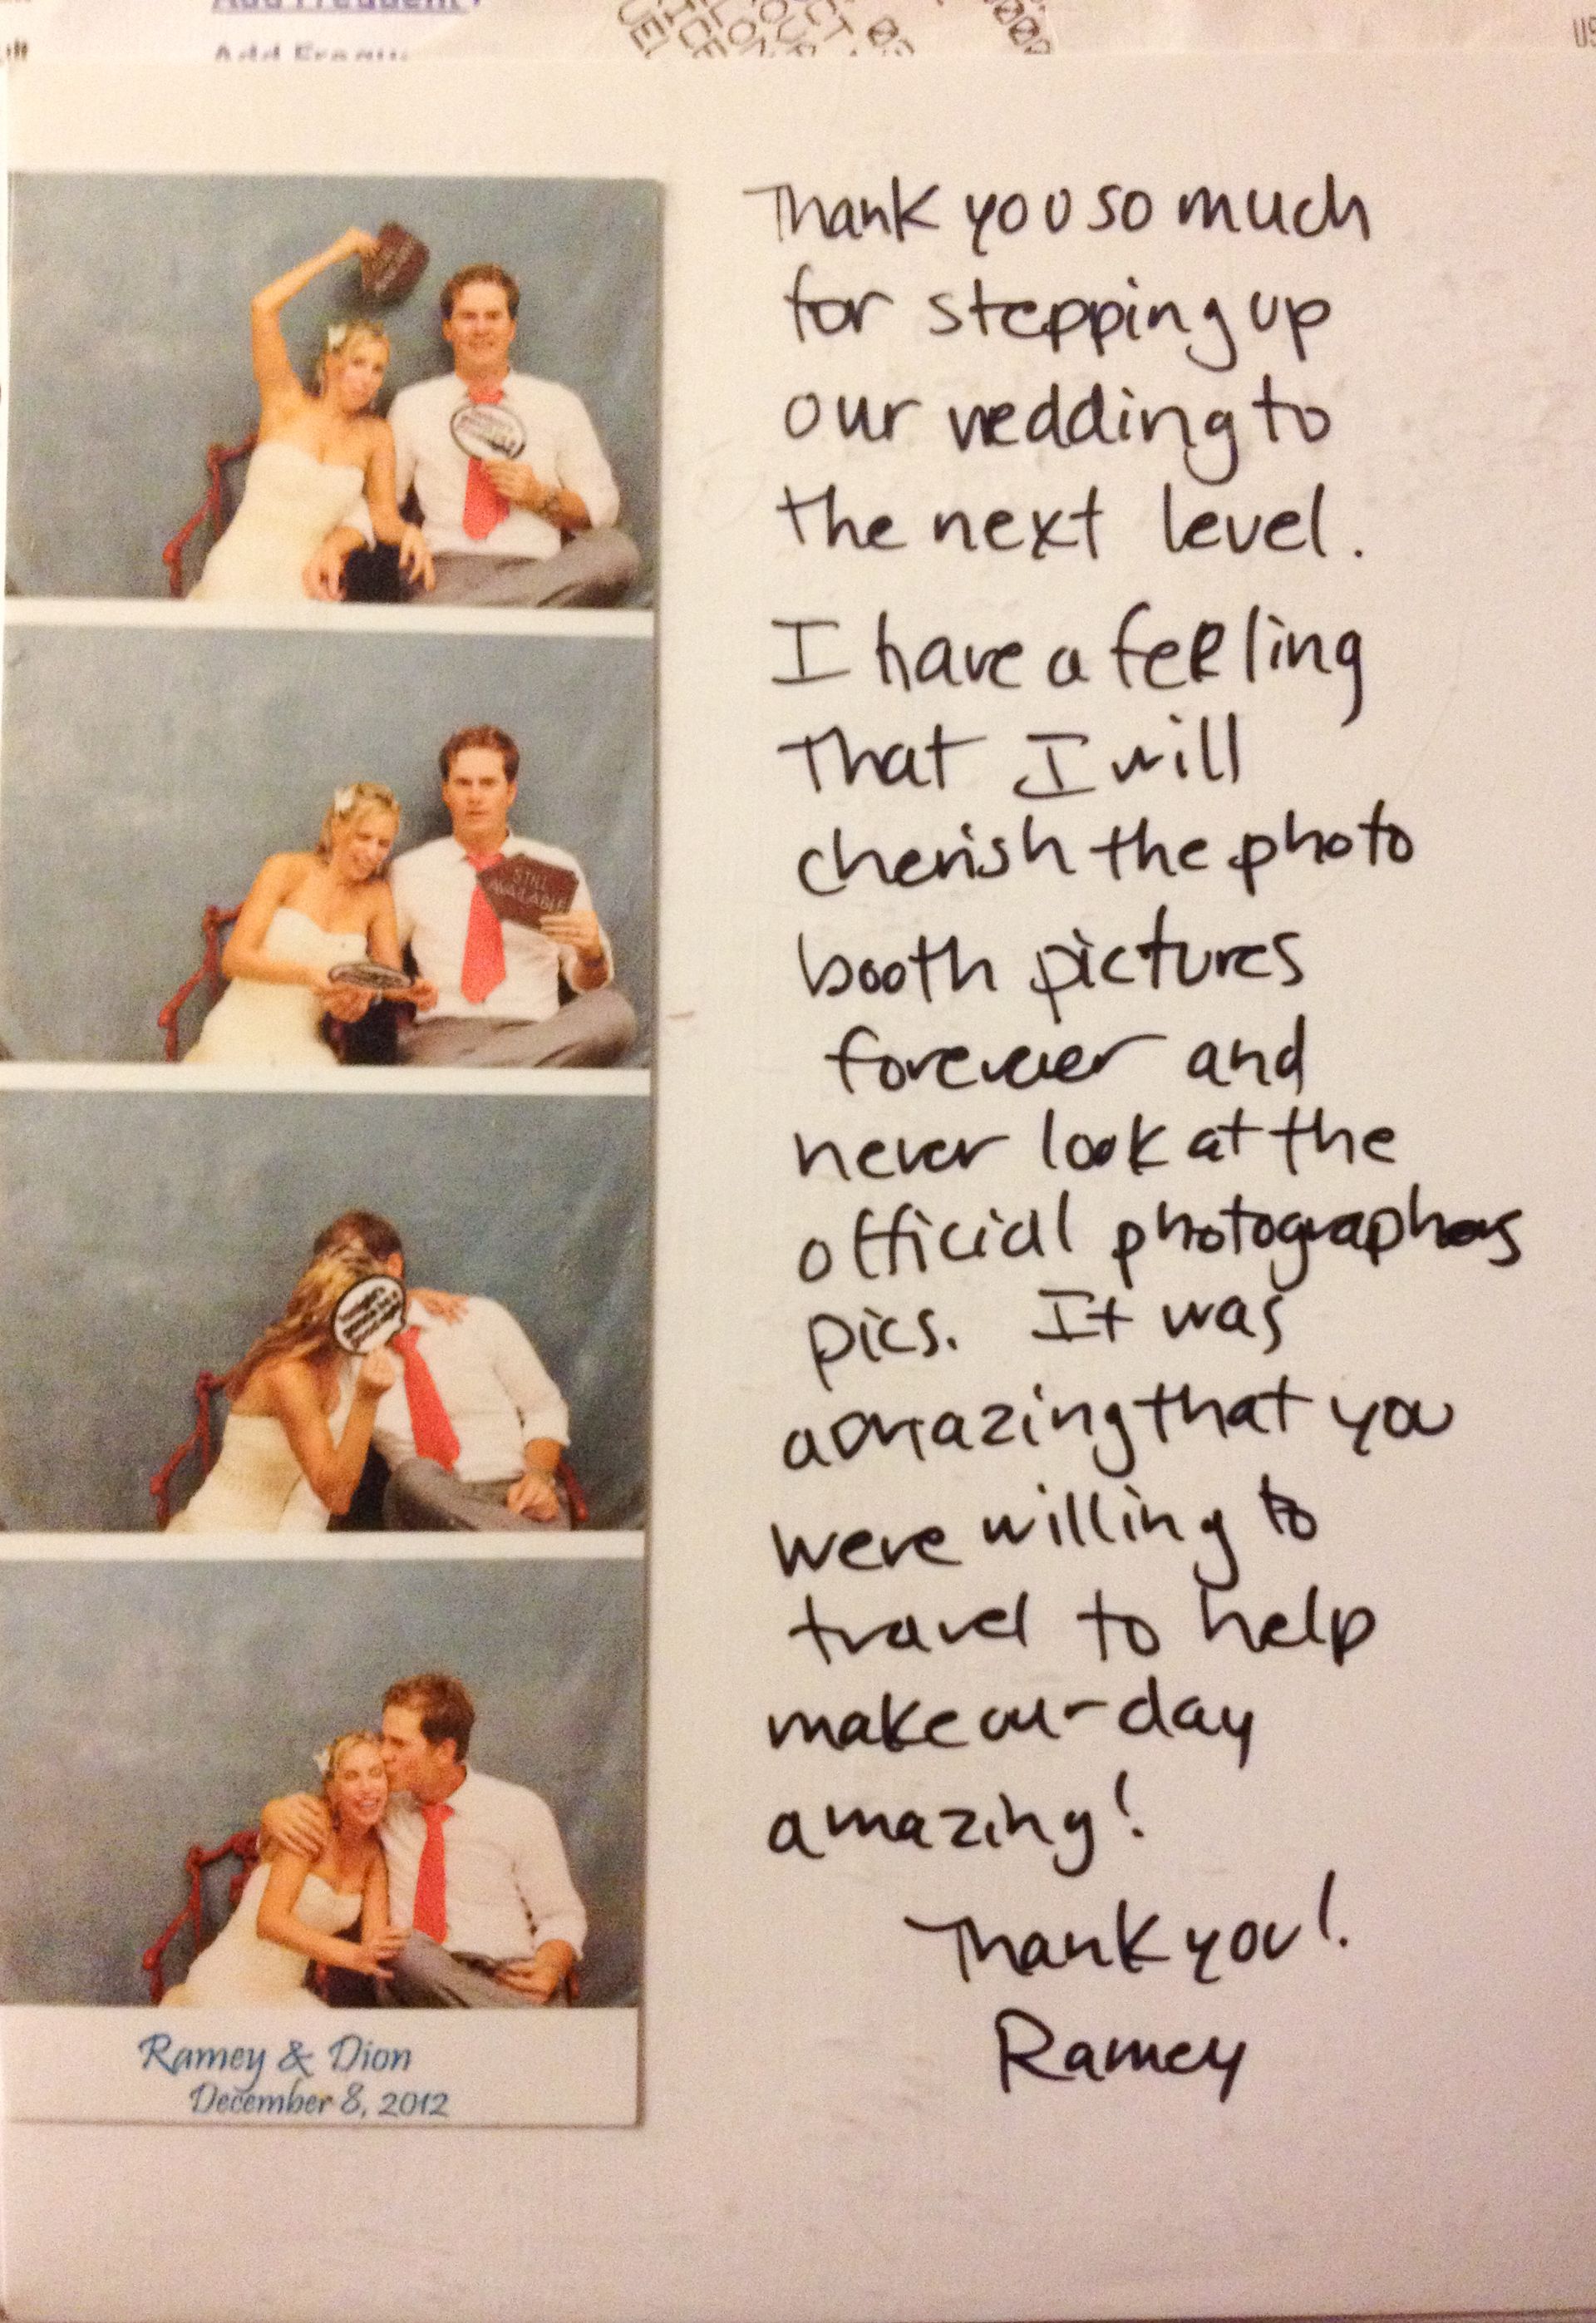 Add Frequent
US
Thank you so much
for stepping up
our wedding to
the next level.
I have a feeling
that I will
cherish the photo
booth pictures
forever and
never look at the
official photographers
pics. It was
amazing that you
were willing to
travel to help
make our day
amazing!
Thank you!
Ramey
STILL
AVAILABLE
Ramey & Dion
December 8, 2012